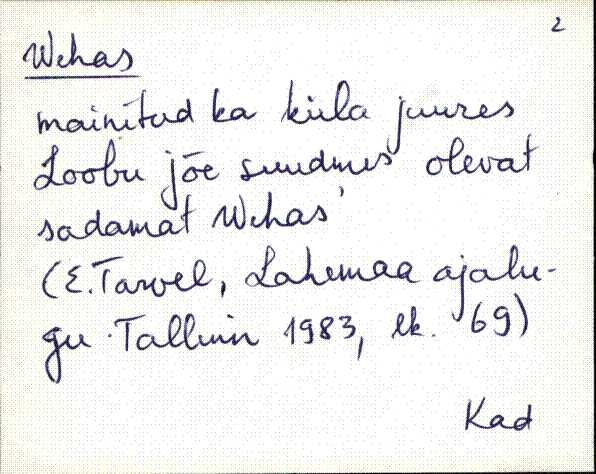 2
Wehas
mainitud ka küla juures
Loobu jõe suudmes olevat
sadamat Wehas'
(E. Tarvel, Lahemaa ajalu-
gu. Tallinn 1983, lk. 69)
Kad